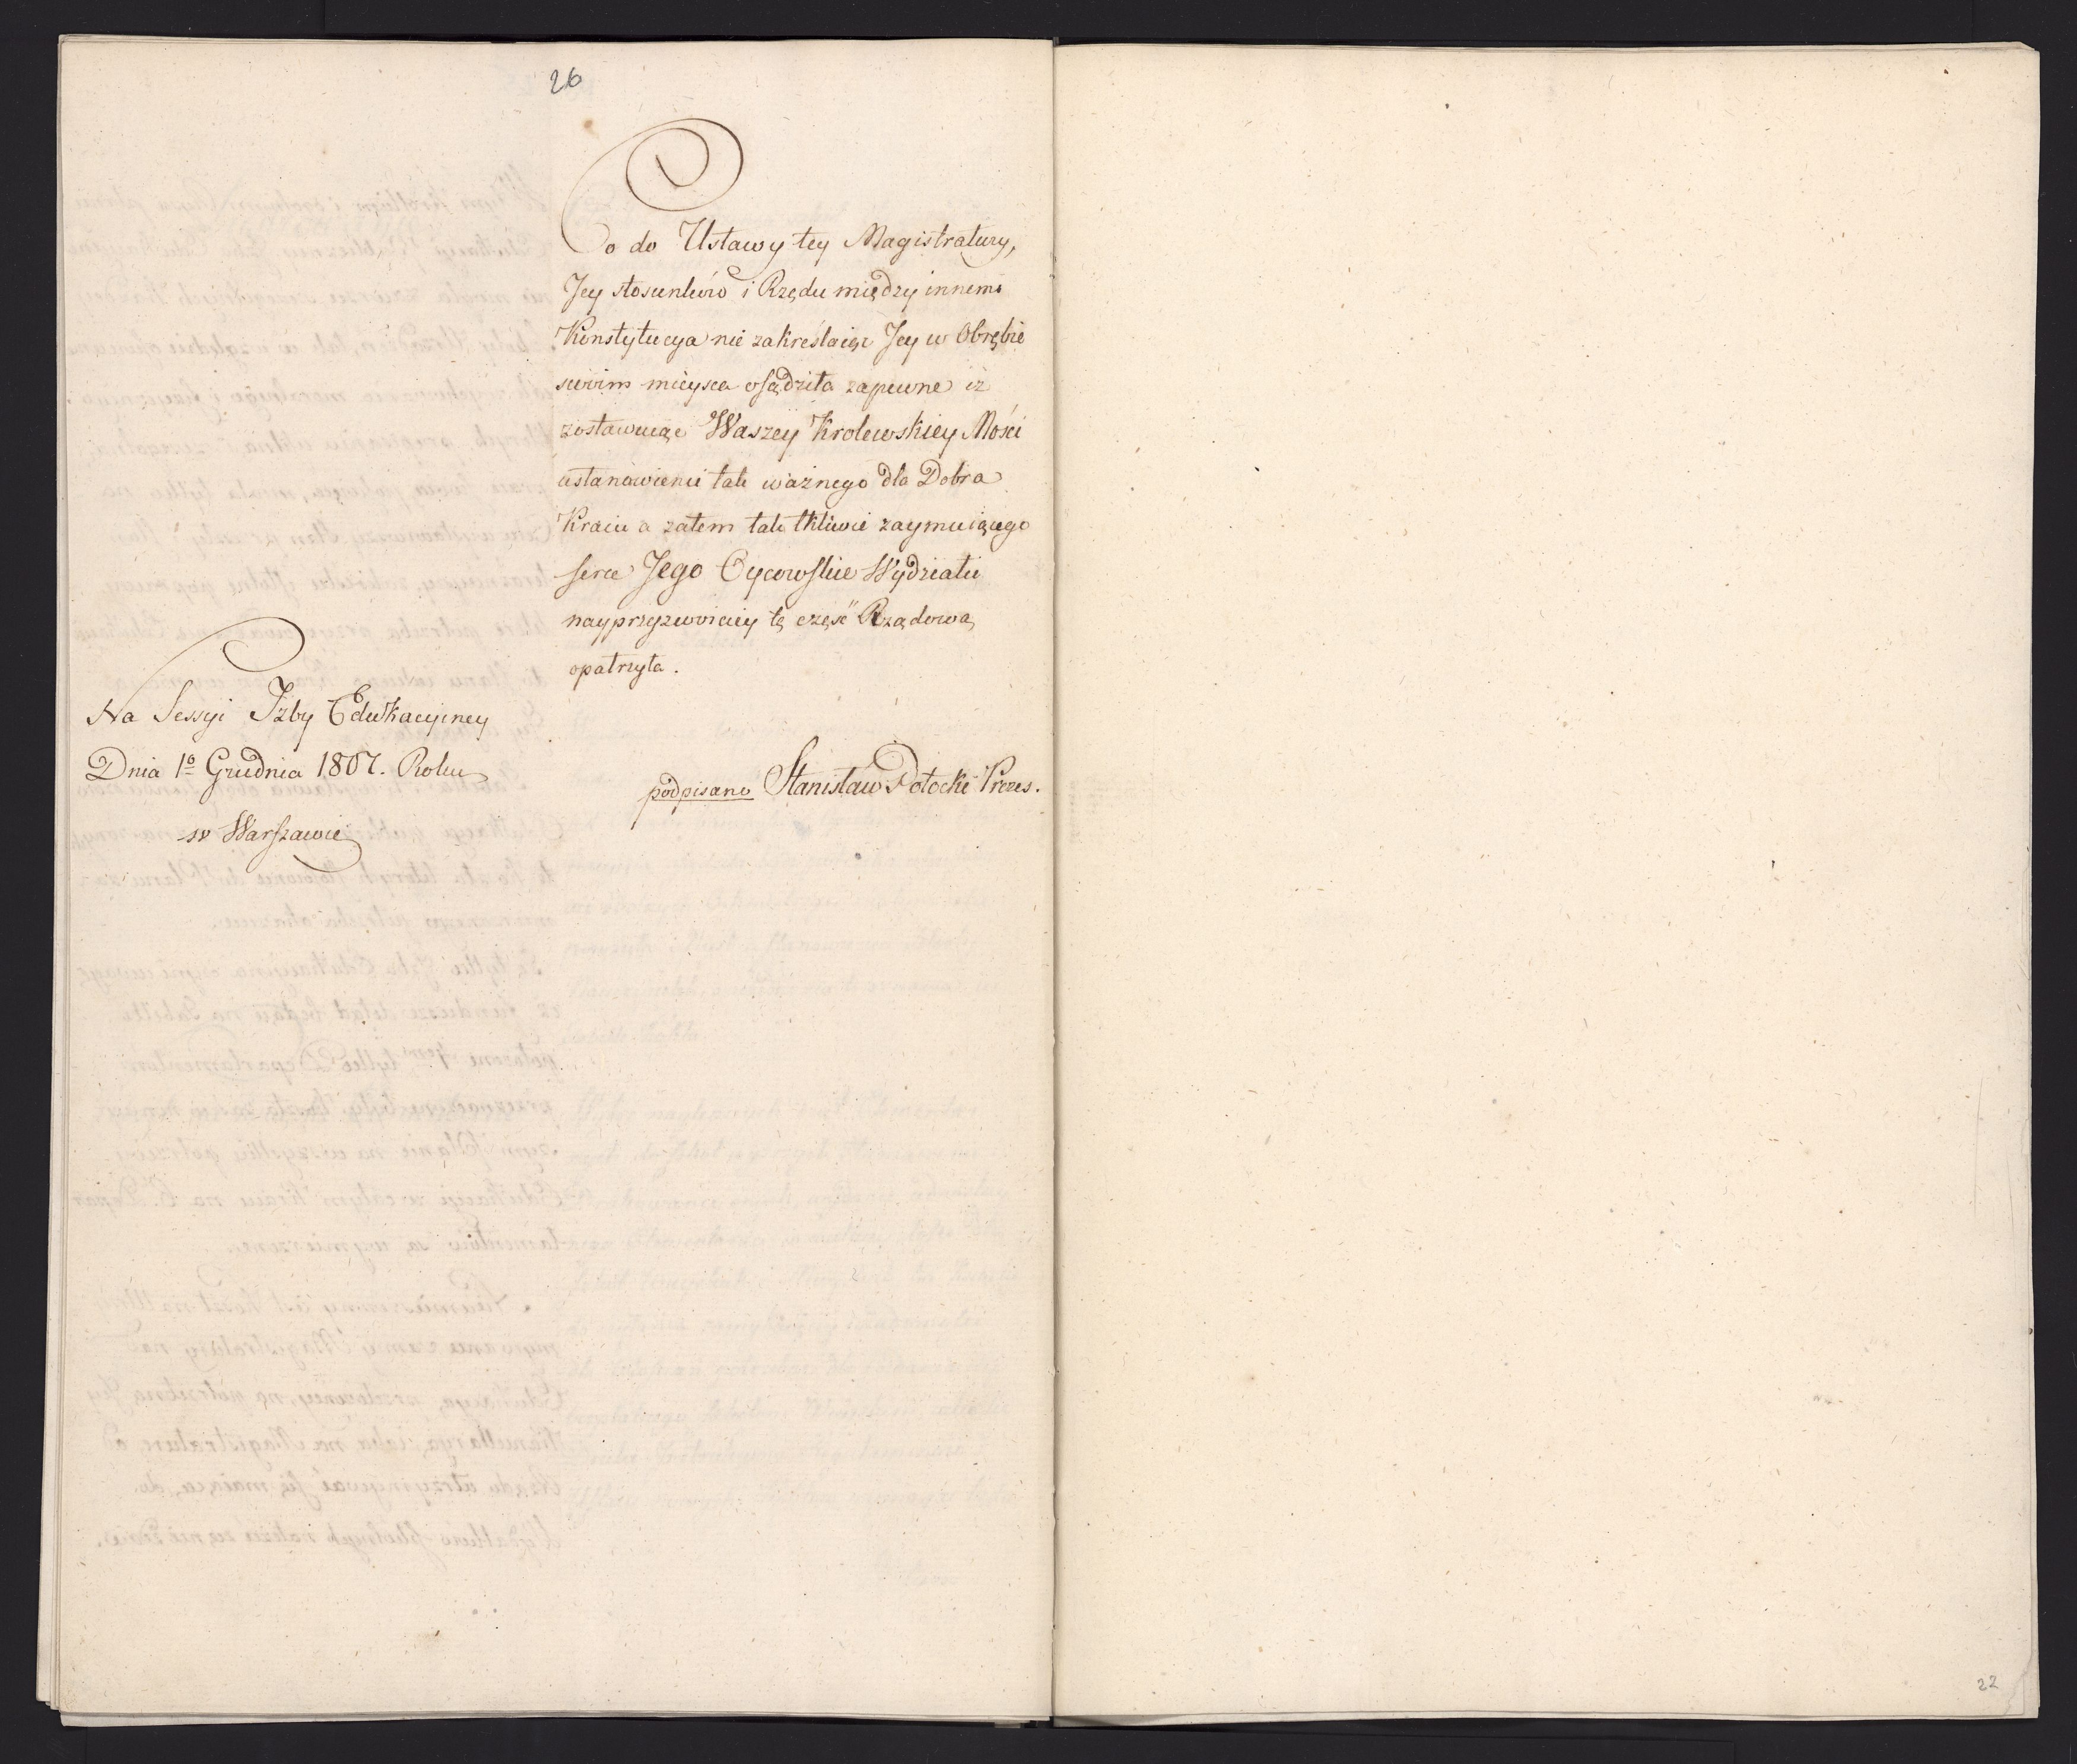 26
Co do Ustawy tey Magistratury,
Jey stosunków i Rzędu między innemi
Konstytucya nie zakreślaiąc Jey w Obrębie
swoim mieysca osądziła zapewne iż
zostawuiąc Waszey Krolewskiey Mości
ustanowienie tak ważnego dla Dobra
Kraiu a zatem tak tkliwie zaymuiącego
serce Jego Oycowskie Wydziału
nayprzyzwoiciey tę część Rządową
opatrzyła.
Na Sessyi Izby Edukacyiney
Dnia 1º Grudnia 1807. Roku
w Warszawie
podpisano Stanisław Potocki Prezes.
22